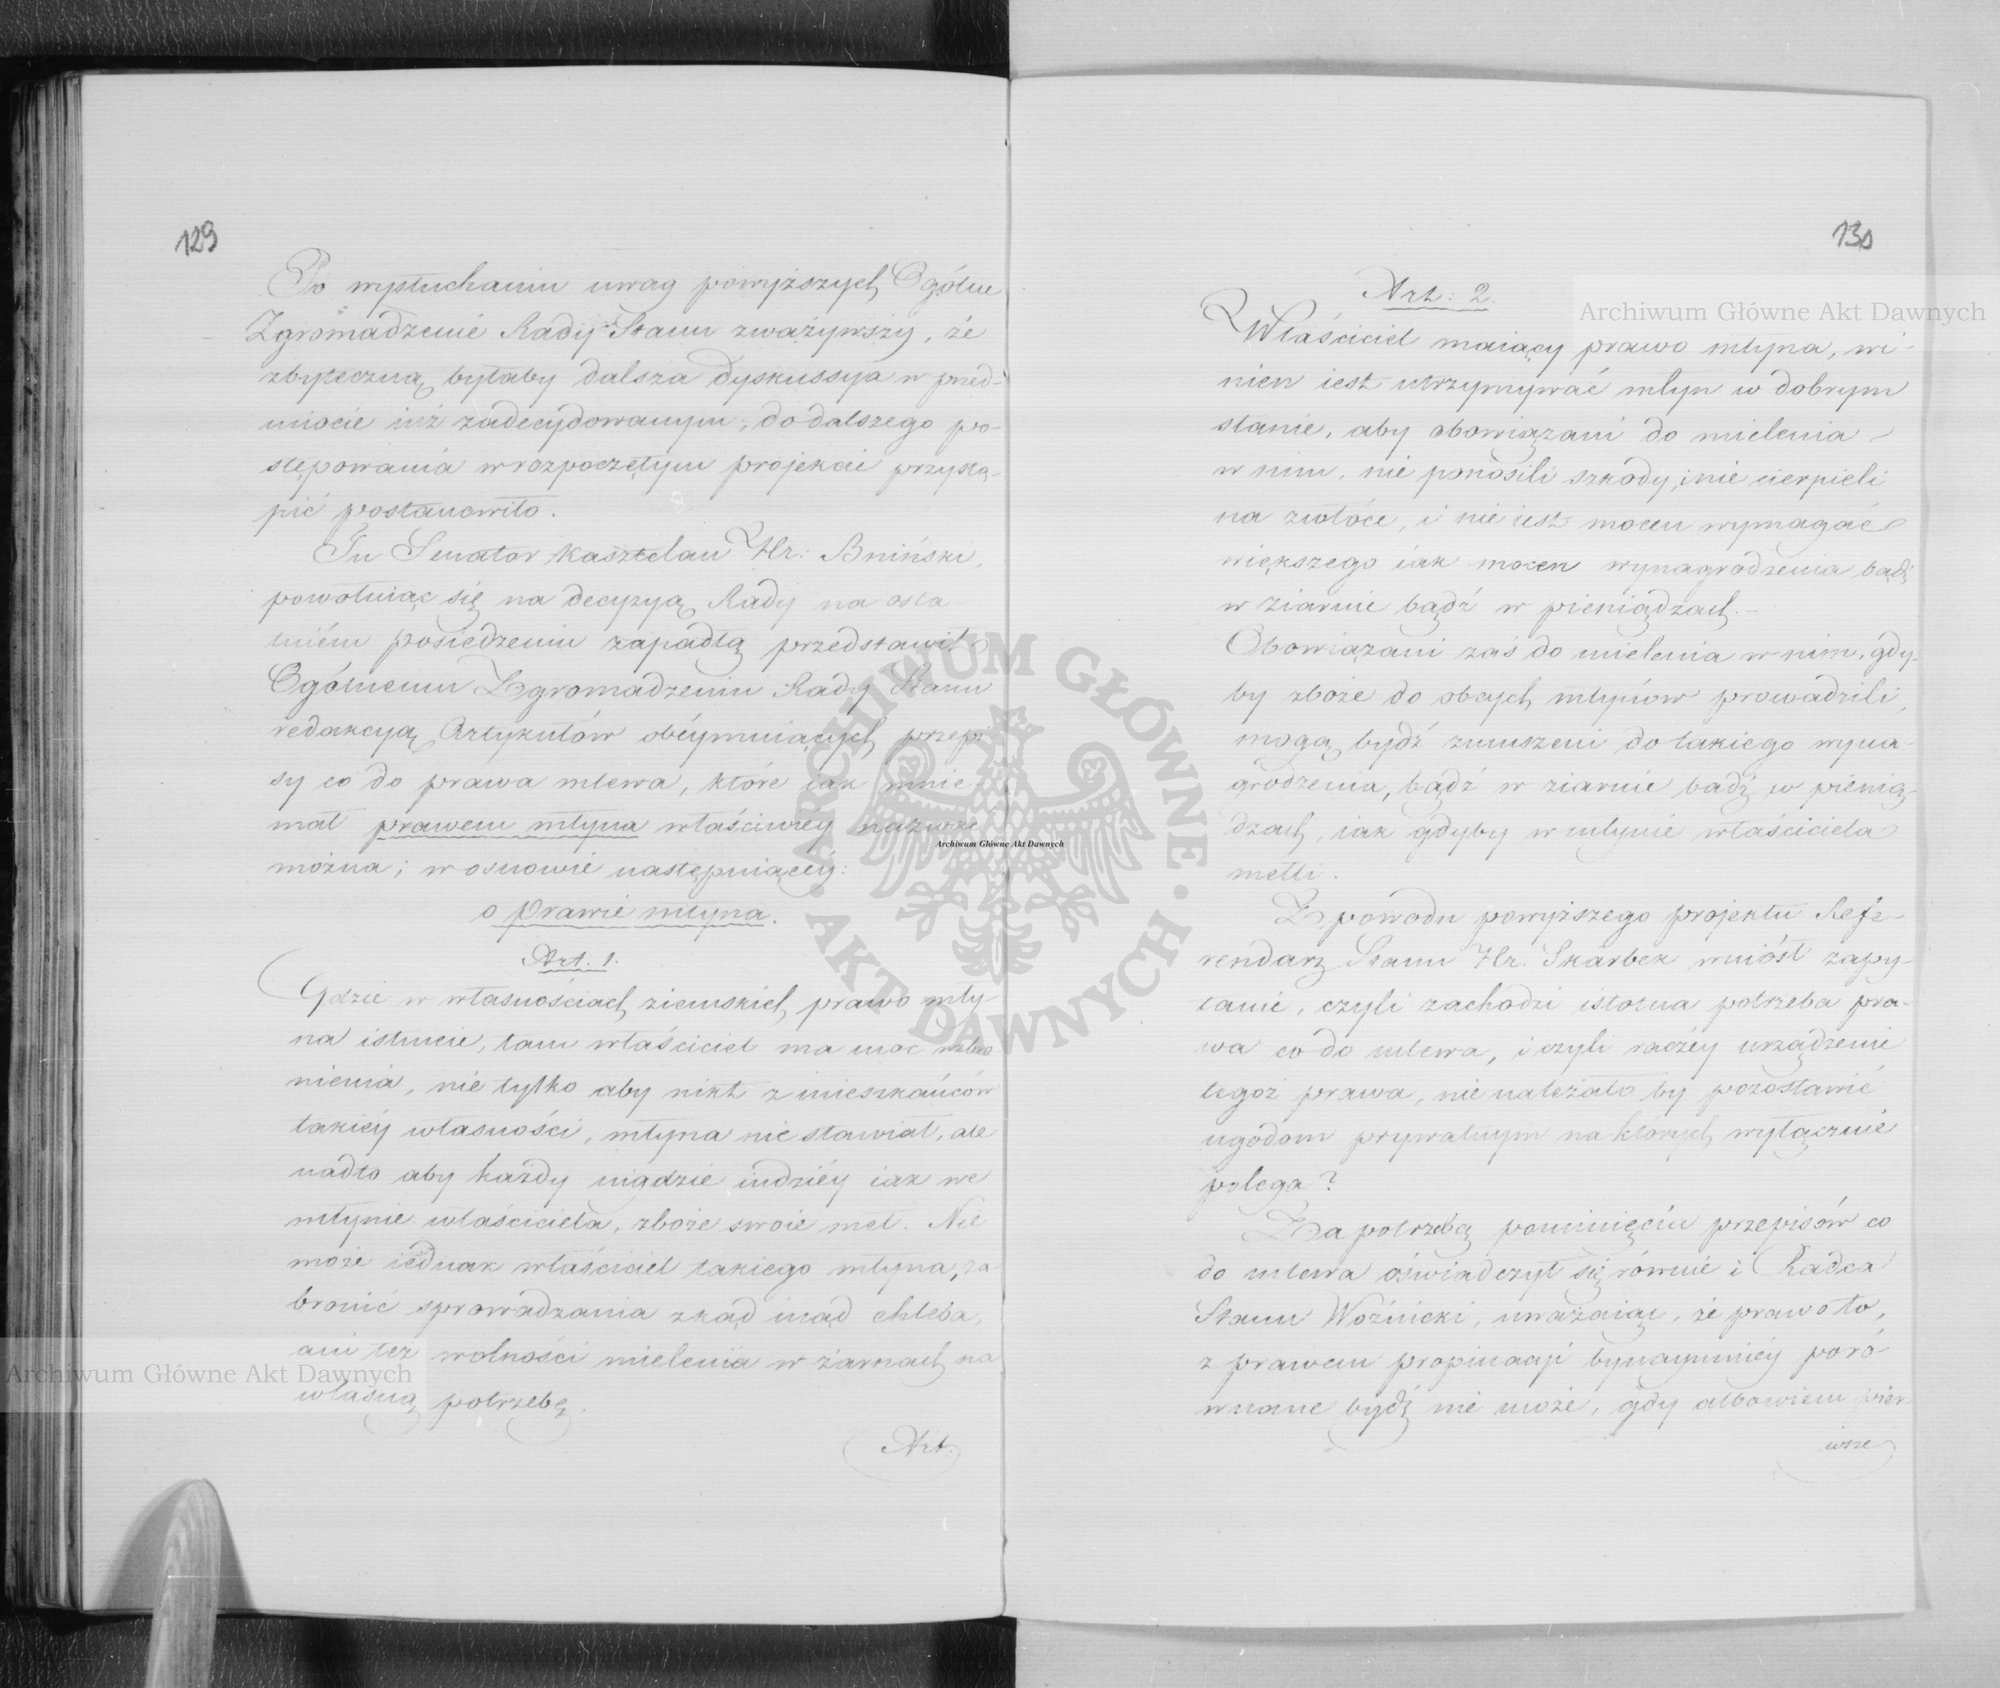 129
Po wysłuchaniu uwag powyższych, Ogólne
Zgromadzenie Rady Stanu zważywszy, że
zbyteczną byłaby dalsza dyskussya w przed-
miocie iuż zadecydowanym, do dalszego po-
stępowania w rozpoczętym projekcie przystą-
pić postanowiło.
Tu Senator Kasztelan Hr: Bniński,
powołuiąc się na decyzyą Rady na osta-
tniém posiedzeniu zapadłą przedstawił
Ogólnemu Zgromadzeniu Rady Stanu
redakcyą Artykułów obéymuiących przepi-
sy co do prawa mlewa, które iak mnie-
mał prawem młyna właściwiéy nazwać
można; w osnowie następuiącéy:
o prawie młyna.
Art. 1.
Gdzie w własnościach ziemskich prawo mły-
na istnieie, tam właściciel ma moc wzbro-
nienia, nie tylko aby nikt z mieszkańców
takiéy własności, młyna nie stawiał, ale
nadto aby każdy nigdzie indziéy iak we
młynie właściciela, zboże swoie mełł. Nie
może iednak właściciel takiego młyna, za-
bronić sprowadzania zkąd inąd chleba,
ani też wolności mielenia w żarnach na
własną potrzebę.
Art.
130
Art: 2.
Właściciel maiący prawo młyna, wi-
nien iest utrzymywać młyn w dobrym
stanie, aby obowiązani do mielenia
w nim, nie ponosili szkody, i nie cierpieli
na zwłóce, i nie iest mocen wymagać
większego iak mocen wynagrodzenia bądź
w ziarnie bądź w pieniądzach.
Obowiązani zaś do mielenia w nim, gdy-
by zboże do obcych młynów prowadzili,
mogą bydź zmuszeni do takiego wyna-
grodzenia, bądź w ziarnie bądź w pienią-
dzach, iak gdyby w młynie właściciela
mełli.
Z powodu powyższego projektu Refe-
rendarz Stanu Hr. Skarbek wniósł zapy-
tanie, czyli zachodzi istotna potrzeba pra-
wa co do mlewa, i czyli raczéy urządzenie
tegoż prawa, nie należało by pozostawić
ugodom prywatnym na których wyłącznie
polega?
Za potrzebą pominięciu przepisów co
do mlewa oświadczył się równie i Radca
Stanu Woźnicki, uważaiąc, że prawo to,
z prawem propinacji bynaymniéy poró-
wnane bydź nie może, gdy albowiem pier-
wsze
Archiwum Główne Akt Dawnych
Archiwum Główne Akt Dawnych
Archiwum Główne Akt Dawnych
ARCHIWUM GŁÓWNE · AKT DAWNYCH ·